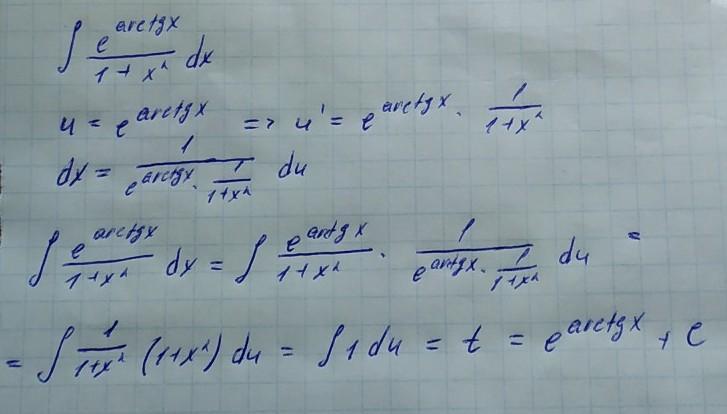 ∫ e^(arctgx) / (1 + x²) dx
u = e^(arctgx) => u' = e^(arctgx) · 1/(1+x²)
dx = 1 / (e^(arctgx) · 1/(1+x²)) du
∫ e^(arctgx) / (1+x²) dx = ∫ e^(arctgx) / (1+x²) · 1 / (e^(arctgx) · 1/(1+x²)) du =
= ∫ 1/(1+x²) (1+x²) du = ∫ 1 du = t = e^(arctgx) + C